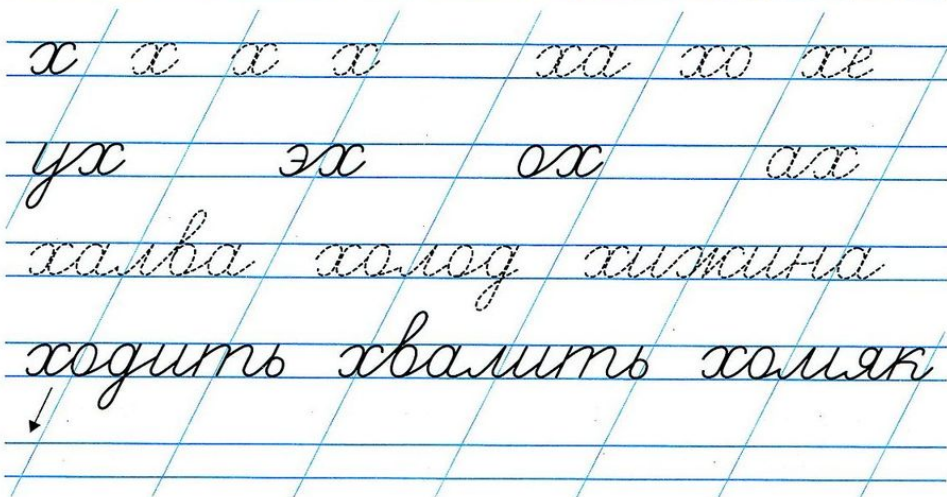 х х х х ха хо хе
ух эх ох ах
халва холод хижина
ходить хвалить хомяк